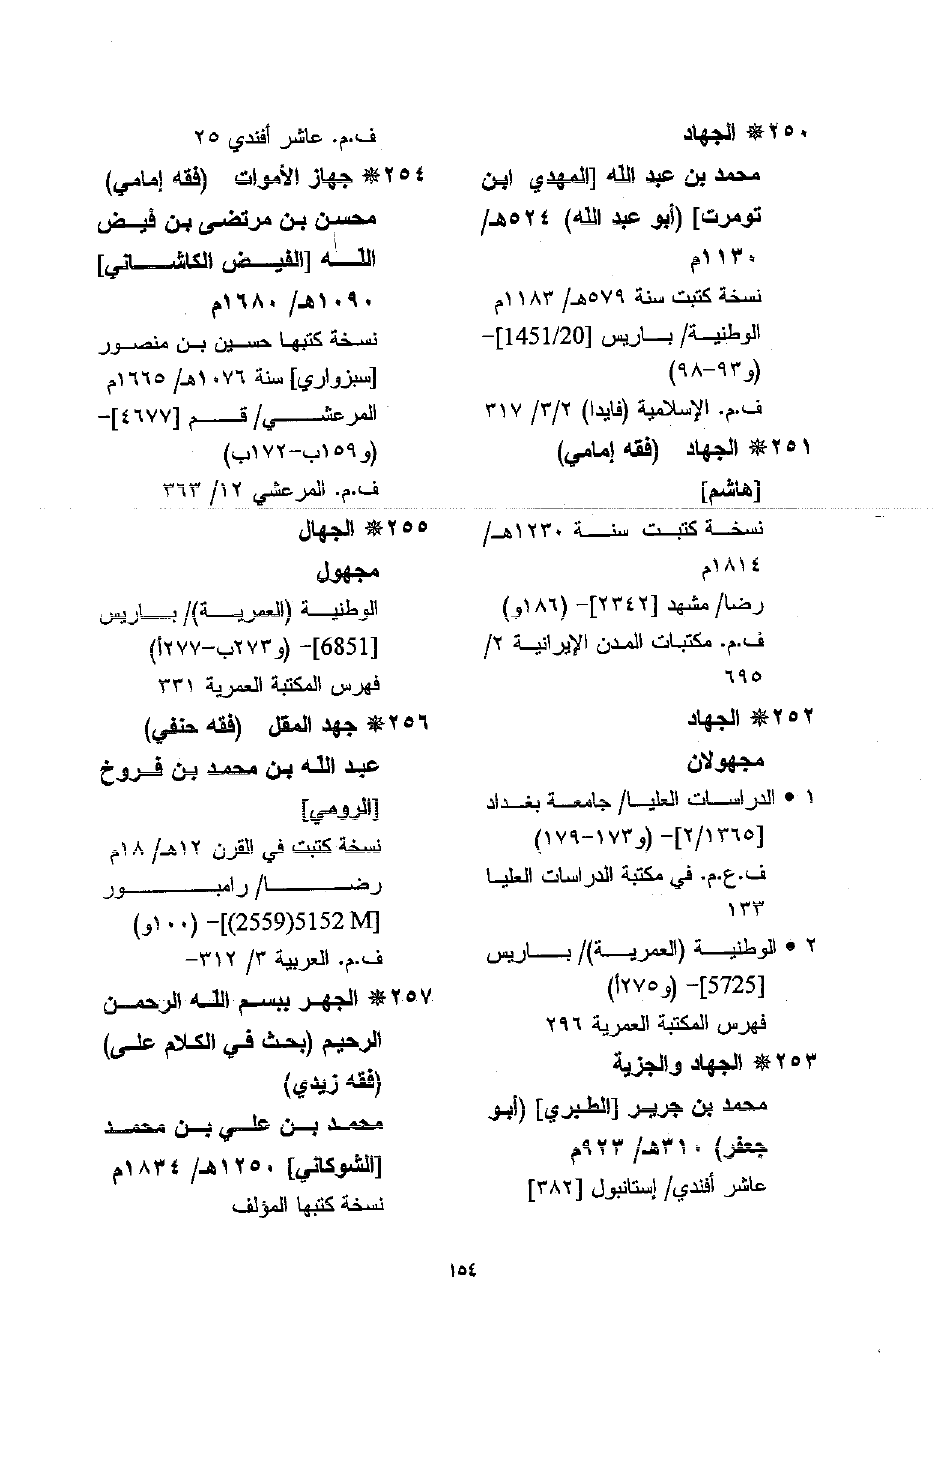 ٢٥٠* الجهاد
محمد بن عبد الله [المهدي ابن
تومرت] (أبو عبد الله) ٥٢٤هـ/
١١٣٠م
نسخة كتبت سنة ٥٧٩هـ/ ١١٨٣م
الوطنيـة/ بـاريس [1451/20]-
(و٩٣-٩٨)
ف.م. الإسلامية (فايدا) ٣/٢/ ٣١٧
٢٥١* الجهاد (فقه إمامي)
[هاشم]
نسخـة كتبـت سنـة ١٢٣٠هـ/
١٨١٤م
رضا/ مشهد [٢٣٤٢]- (١٨٦و)
ف.م. مكتبات المدن الإيرانية ٢/
٦٩٥
٢٥٢* الجهاد
مجهولان
١ • الدراسات العليا/ جامعة بغداد
[٢/١٣٦٥]- (و١٧٣-١٧٩)
ف.ع.م. في مكتبة الدراسات العليا
١٣٣
٢ • الوطنيـة (العمريـة)/ بـاريس
[5725]- (و٢٧٥أ)
فهرس المكتبة العمرية ٢٩٦
٢٥٣* الجهاد والجزية
محمد بن جرير [الطبري] (أبو
جعفر) ٣١٠هـ/ ٩٢٣م
عاشر أفندي/ إستانبول [٣٨٢]
ف.م. عاشر أفندي ٢٥
٢٥٤* جهاز الأموات (فقه إمامي)
محسن بن مرتضى بن فيض
اللـه [الفيـض الكاشـاني]
١٠٩٠هـ/ ١٦٨٠م
نسخة كتبها حسين بن منصور
[سبزواري] سنة ١٠٧٦هـ/ ١٦٦٥م
المرعشـي/ قـم [٤٦٧٧]-
(و١٥٩ب-١٧٢ب)
ف.م. المرعشي ١٢/ ٣٦٣
٢٥٥* الجهال
مجهول
الوطنيـة (العمريـة)/ بـاريس
[6851]- (و٢٧٣ب-٢٧٧أ)
فهرس المكتبة العمرية ٣٣١
٢٥٦* جهد المقل (فقه حنفي)
عبد الله بن محمد بن فروخ
[الرومي]
نسخة كتبت في القرن ١٢هـ/ ١٨م
رضـا/ رامبـور
[5152 M(2559)]- (١٠٠و)
ف.م. العربية ٣/ ٣١٢-
٢٥٧* الجهر ببسم الله الرحمن
الرحيم (بحث في الكلام على)
(فقه زيدي)
محمد بن علي بن محمد
[الشوكاني] ١٢٥٠هـ/ ١٨٣٤م
نسخة كتبها المؤلف
١٥٤